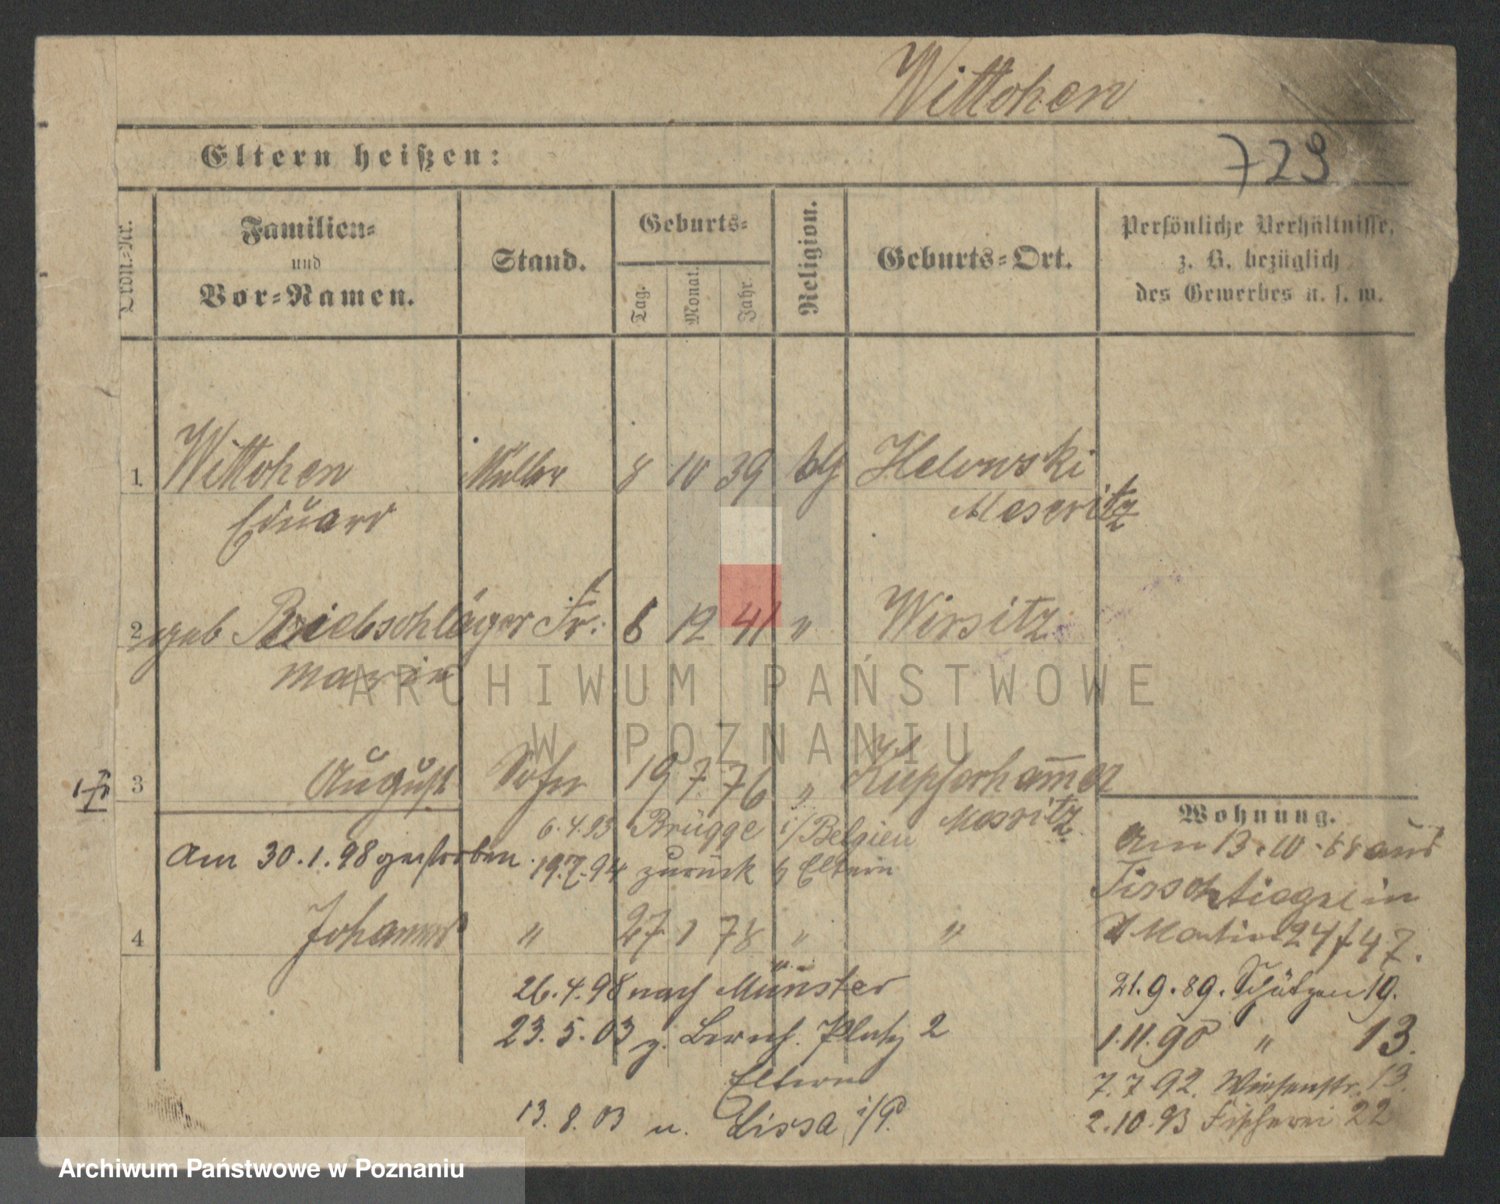 Wittchen
729
Eltern heißen:
Ordn.-Nr.
Familien-
und
Vor-Namen.
Stand.
Geburts-
Tag.
Monat.
Jahr.
Religion.
Geburts-Ort.
Persönliche Verhältnisse,
z. B. bezüglich
des Gewerbes u. s. w.
1 Wittchen Müller 8 10 39
Eduard Meseritz
2 geb Fr. 6 12 41 " Wirsitz
Marie
3 August Sohn 19 7 76 " Kupferhammer
Meseritz
6.4.93 Brügge i/Belgien
Am 30.1.98 gestorben
19.7.94 zurück Eltern
4 Johannes " 27 1 78 " "
26.4.98 nach Münster
23.5.03 Platz 2
Eltern
13.8.03 n. Lissa i/P.
Wohnung.
Am 13.10. aus
Tirschtiegel in
St Martin 24/
21.9.89. Schützen 19.
1.11.90 " 13.
7.7.92. Wiesenstr. 13.
2.10.93 Fischerei 22
ARCHIWUM PAŃSTWOWE
W POZNANIU
Archiwum Państwowe w Poznaniu